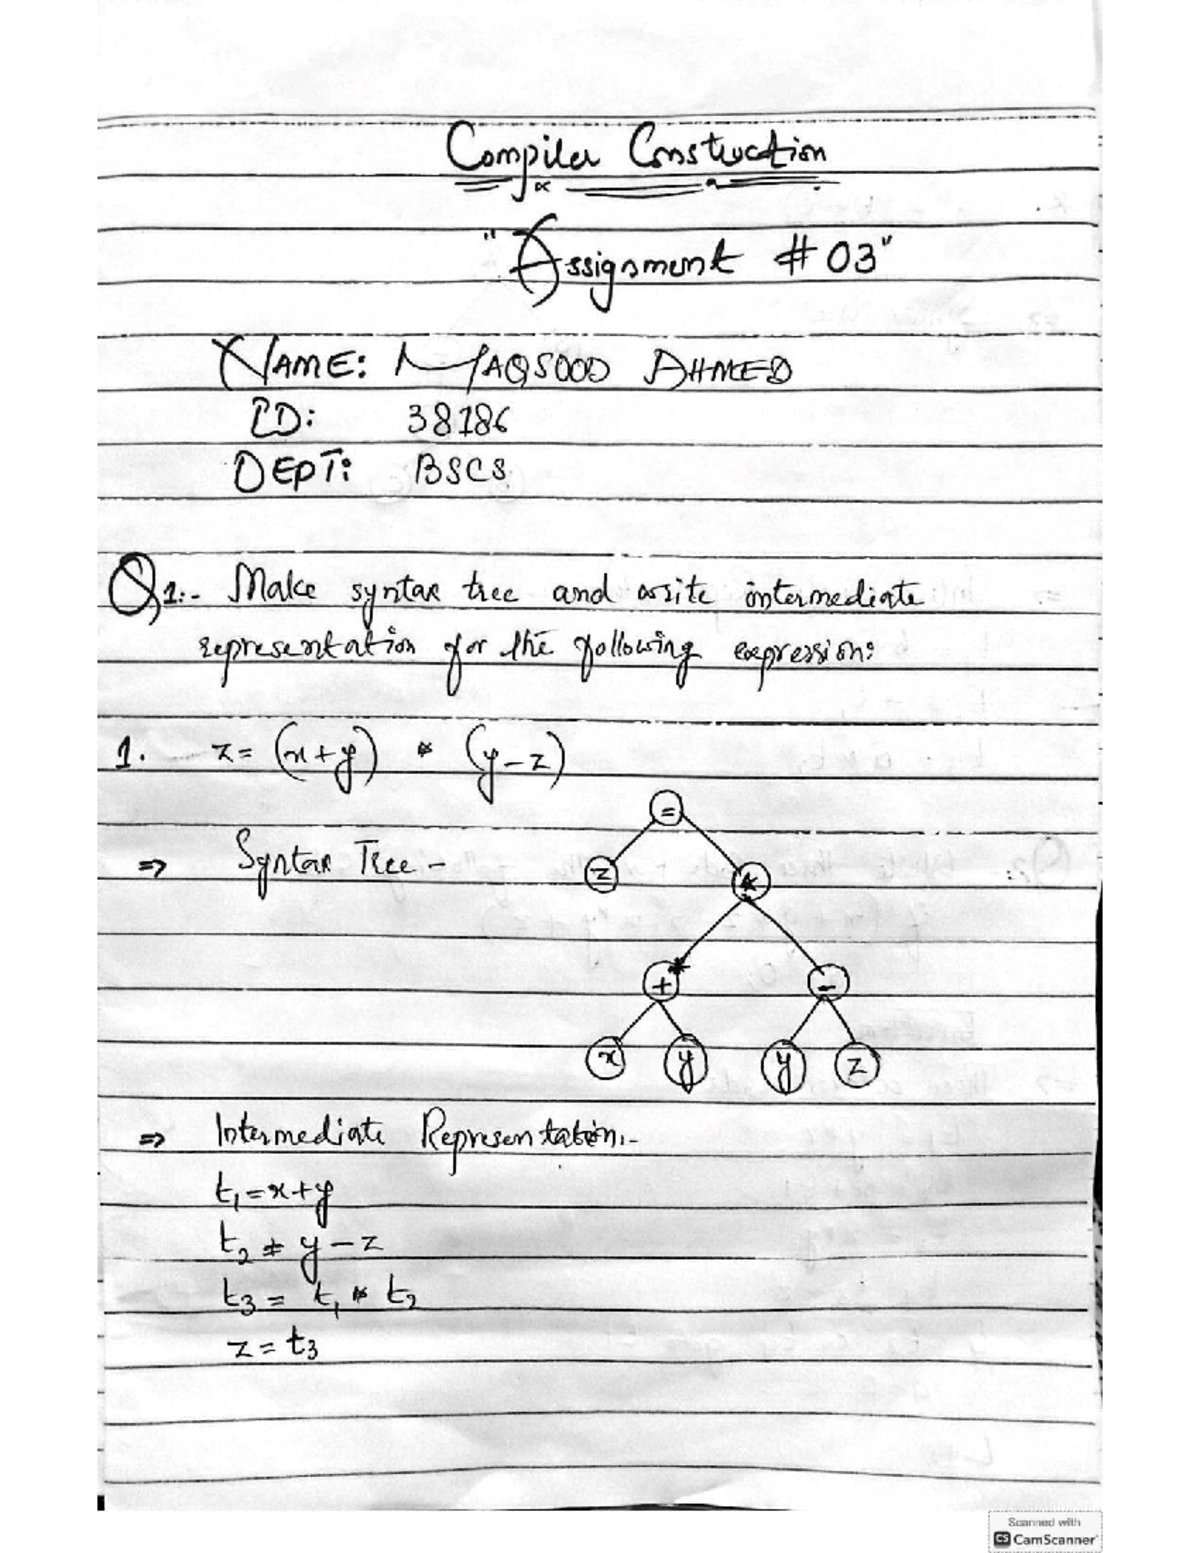 Compiler Construction
"Assignment # 03"
NAME: MAQSOOD AHMED
ID: 38186
DEPT: BSCS
Q1:- Make syntax tree and write intermediate
representation for the following expression:
1. z = (x+y) * (y-z)
=
⇒ Syntax Tree -
z *
+ -
x y y z
⇒ Intermediate Representation:-
t1 = x+y
t2 = y - z
t3 = t1 * t2
z = t3
Scanned with
CS CamScanner